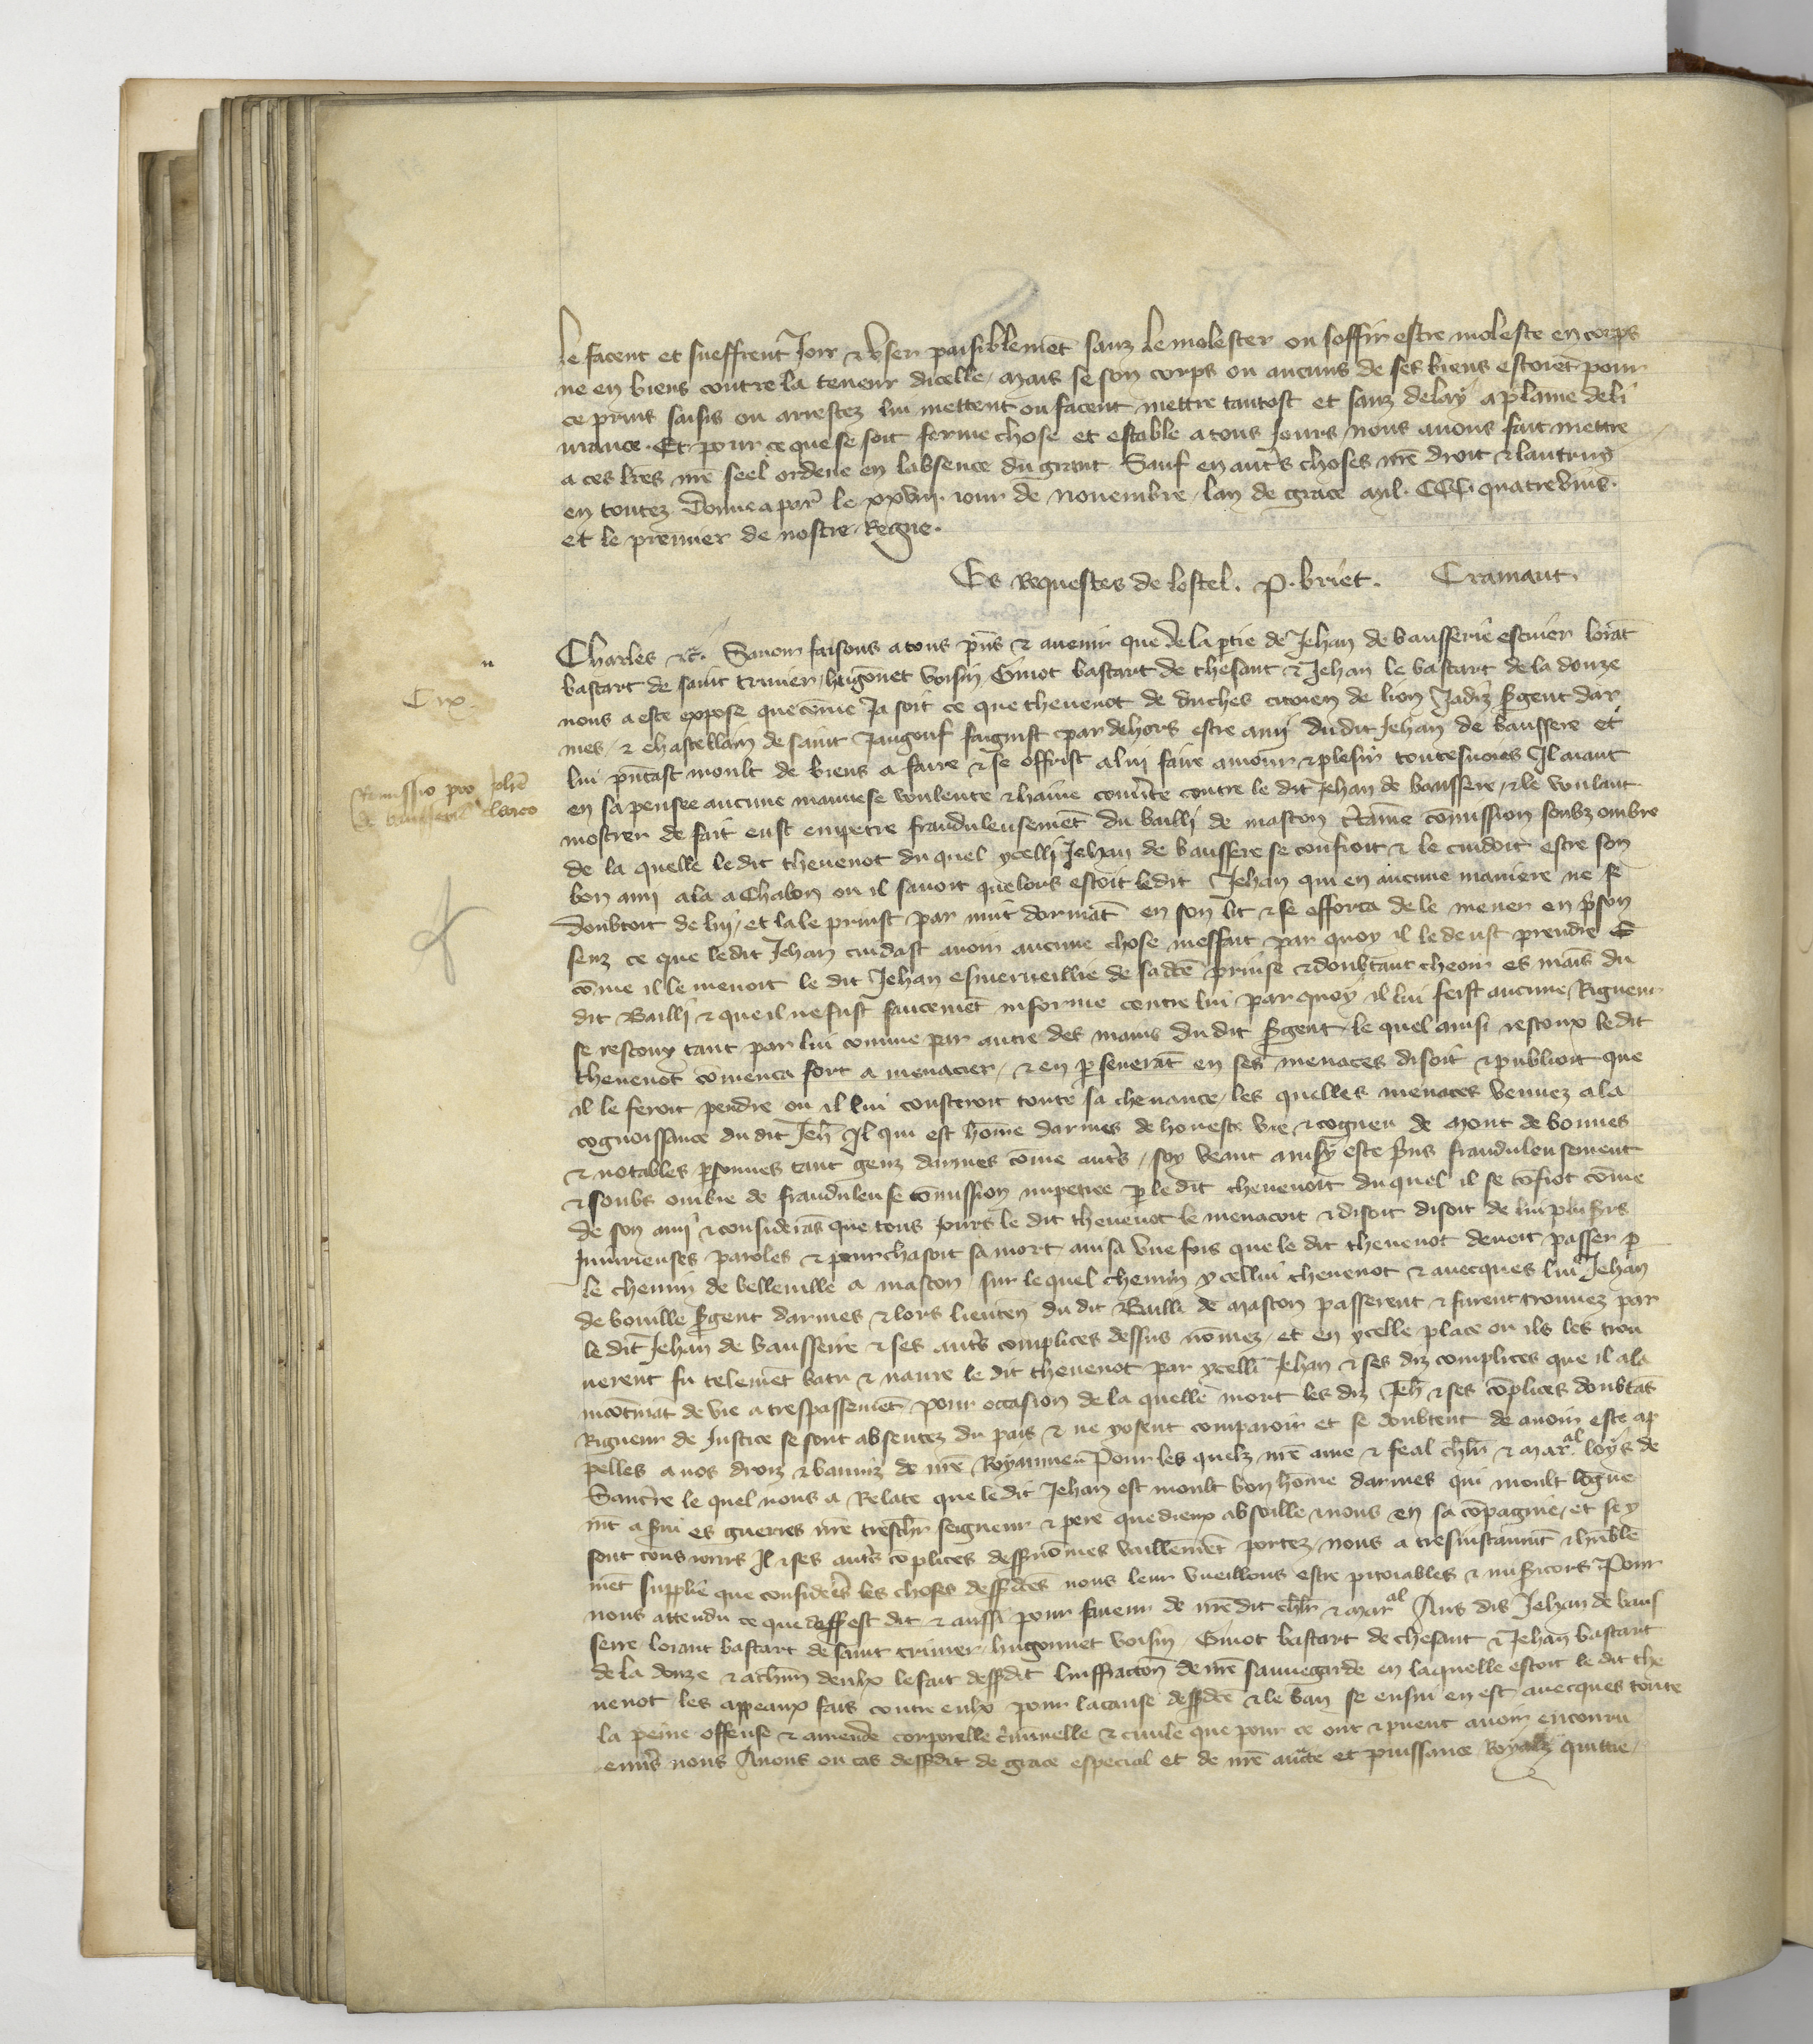 le facent et sueffrent Joir & user paisiblemẽt sanz le molester ou soffrir estre moleste en corps
ne en biens contre la teneur dicelle, mais se son corps ou aucuns de ses biens estoiẽt pour
ce prins saisis ou arrestez lui mettent ou facent mettre tantost et sanz delay a plaine deli
urance. Et pour ce que se soit ferme chose et estable a tous Jours nous auons fait mettre
a ces lrẽs nrẽ seel ordene en labsence du grant. Sauf en autrẽs choses nrẽ droit & lautruy
en toutez. Donne a par̃ le xxviii iour de Nouembre, lan de grace mil. CCC. quatre vins.
et le premier de nostre Regne.
Es Requestes de lostel. P. briet. Cramaut.
Charles &c̃. Sauoir faisons a tous p̃ns & auenir que de la p̃tie de Jehan de bausserie escuier lorãt
Cix
bastart de saint triuier, hugõnet voisin Guiot bastart de chesaut & Jehan le bastart de la douze
nous a este expose que cõme Ja soit ce que theuenot de duches citoien de lion Jadiz s̃gent dar
mes, & chastellain de saint Jangouf faignist par dehors estre ami du dit Jehan de baussere et
Remissio pro Joh̃e
de bausserie
lui p̃ntast moult de biens a faire & se offrist a lui faire amour & plesir toutesuoies Il aiant
en sa pensee aucune mauuese voulente & haine contre le dit Jehan de baussere, & le voulant
mostrer de fait eust empetre frauduleusemẽt du bailli de mascon c̃taine cõmission soubz ombre
de la quelle le dit theuenot du quel ycelli Jehan de baussere se confioit & le cuidoit estre son
bon ami ala a Chalon ou il sauoit que lors estoit le dit Jehan qui en aucune maniere ne se
doubtoit de lui, et la le prinst par nuit dormãt en son lit & se efforca de le mener en p̃son
senz ce que le dit Jehan cuidast auoir aucune chose meffait par quoy il le deust prendre &
cõme il le menoit le dit Jehan esmerueillie de sa dc̃e prinse & doubtant cheoir es mais̃ du
dit Bailli & que il ne fust faucemẽt informe contre lui par quoy il lui feist aucune Rigueur
se rescouy tant par lui comme par autre des mains du dit s̃gent, le quel ainsi rescoux le dit
theuenot cõmenca fort a menacier, & en p̃seuerãt en ses menaces disoit & publioit que
il le feroit pendre ou il lui cousteroit toute sa cheuance, les quelles menaces venuez a la
cognoissance du dit Jeh̃ Il qui est hõme darmes de honeste vie & cogneu de mout de bonnes
& notables p̃sonnes tant genz darmes cõme autrẽs, soy veant ainsy este p̃ns frauduleusement
& soubs ombre de frauduleuse cõmission impetree p̃ le dit theuenot du quel il se cõfiot cõme
de son ami & considerãs que tous Jours le dit theuenot le menacoit & disoit disoit de lui plus̃rs
Iniurieuses paroles & pourchasoit sa mort auisa vne fois que le dit theuenot deuoit passer p̃
le chemin de belleuille a mascon sur le quel chemin ycellui theuenot & auecques lui Jehan
de bouille s̃gent darmes & lors lieuten̄ du dit Bailli de mascon passerent & furent trouuez par
le dit Jehan de bausseire & ses autrẽs complices dessus nõmez, et en ycelle place ou ils les trou
uerent fu telemẽt batu & naure le dit theuenot par ycelli Jehan & ses diz complices que il ala
incõtinãt de vie a trespassemẽt pour occasion de la quelle mort les diz Jeh̃ & ses cõplices doubtãs
Rigueur de Justice se sont absentez du pais & ne y osent comparoir et se doubtent de auoir este ap
pelles a nos droiz & banniz de nrẽ Royaume Pour les quelz nrẽ ame & feal chl̃r & mar.al loys de
Sancerre le quel nous a Relate que le dit Jehan est moult bon hõme darmes qui moult lõgue
mt̃ a s̃ui es guerres nrẽ treschr̃ seigneur & pere que dieux absoille & nous en sa cõpagnie, et se y
sont tous iours Il & ses autrẽs cõplices dessusnõmes vaillemẽt portez, nous a tresinstanmt̃ & hũble
mẽt supplie que considerẽs les choses dessusdc̃es nous leur vueillons estre pitoiables & mis̃icors Pour
nous attendu ce que dessus est dit & aussi pour faueur de nrẽ dit chl̃r & mar.al Aus dis Jehan de baus
serre lorant bastart de saint triuier, hugonnet voisin Guiot bastart de chesaut & Jehan bastart
de la douze & a chũn deulx le fait dessusdit linffractõn de nrẽ sauuegarde en laquelle estoit le dit the
uenot les appeaux fais contre eulx pour la cause dessusdc̃e & le ban se ensui en est auecques toute
la peine offense & amende corporelle c̃iminelle & ciuile que pour ce ont & pueent auoir encouru
enuẽrs nous Auons ou cas dessusdit de grace especial et de nrẽ aucte et puissance Royalz quittie,